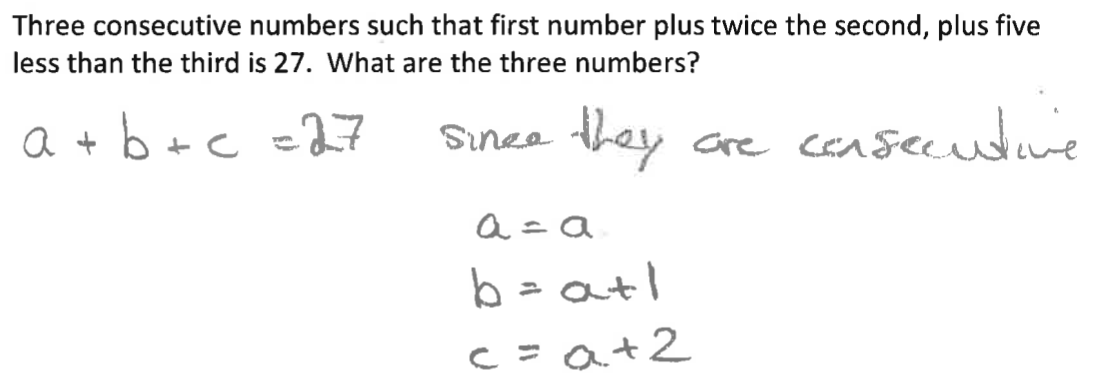 Three consecutive numbers such that first number plus twice the second, plus five
less than the third is 27. What are the three numbers?
a + b + c = 27 since they are consecutive
a = a
b = a+1
c = a+2